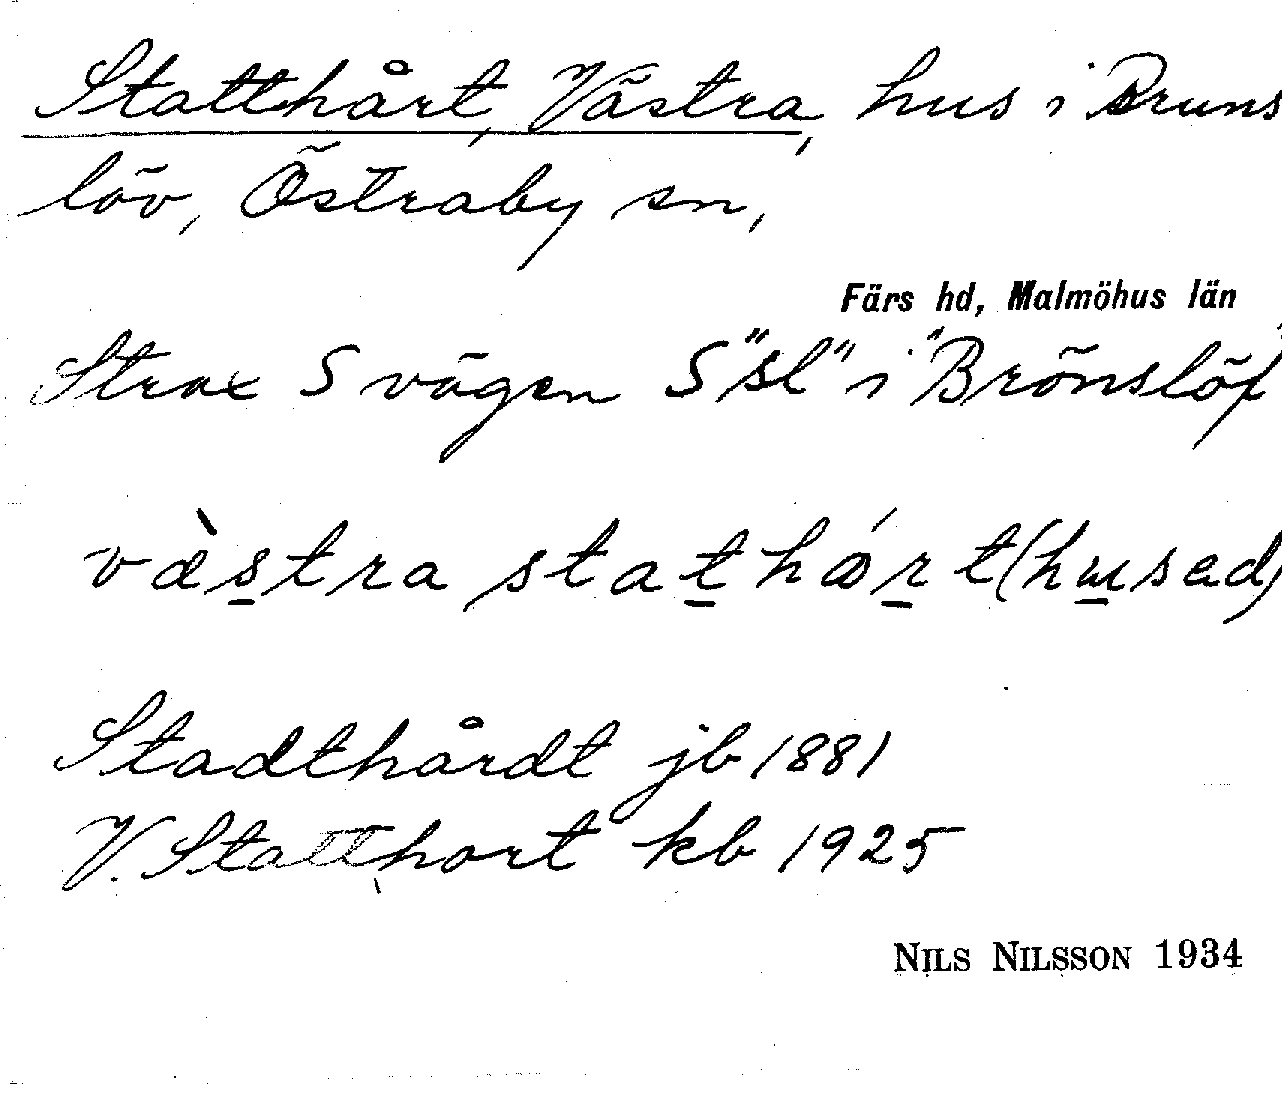 Statthårt, Västra, hus i Bruns
löv, Östraby sn,
Färs hd, Malmöhus län
Strax S vägen S "sl" i "Brönslöf"
vàstra stathǿrt (husad)
Stadthårdt jb 1881
V. Statthort kb 1925
NILS NILSSON 1934